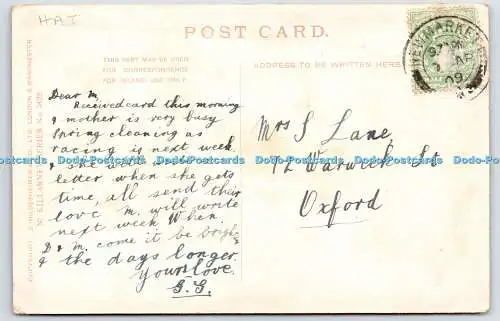 HAT
POST CARD.
THIS HALF MAY BE USED
FOR CORRESPONDENCE
FOR INLAND USE ONLY.
ADDRESS TO BE WRITTEN HERE
Dear M.
Received card this morning
& mother is very busy
Spring cleaning as
racing is next week
& she will
letter when she gets
time, all send their
love M. will write
next week. When
D & M. come it be bright
& the days longer
Yours love
G.G.
Mrs S Lane,
72 Warwick St
Oxford
NEWMARKET
AP
09
COPYRIGHT
LONDON & MANCHESTER
Dodo-Postcards Dodo-Postcards Dodo-Postcards Dodo-Postcards Dodo-Postcards Dodo-Postcards